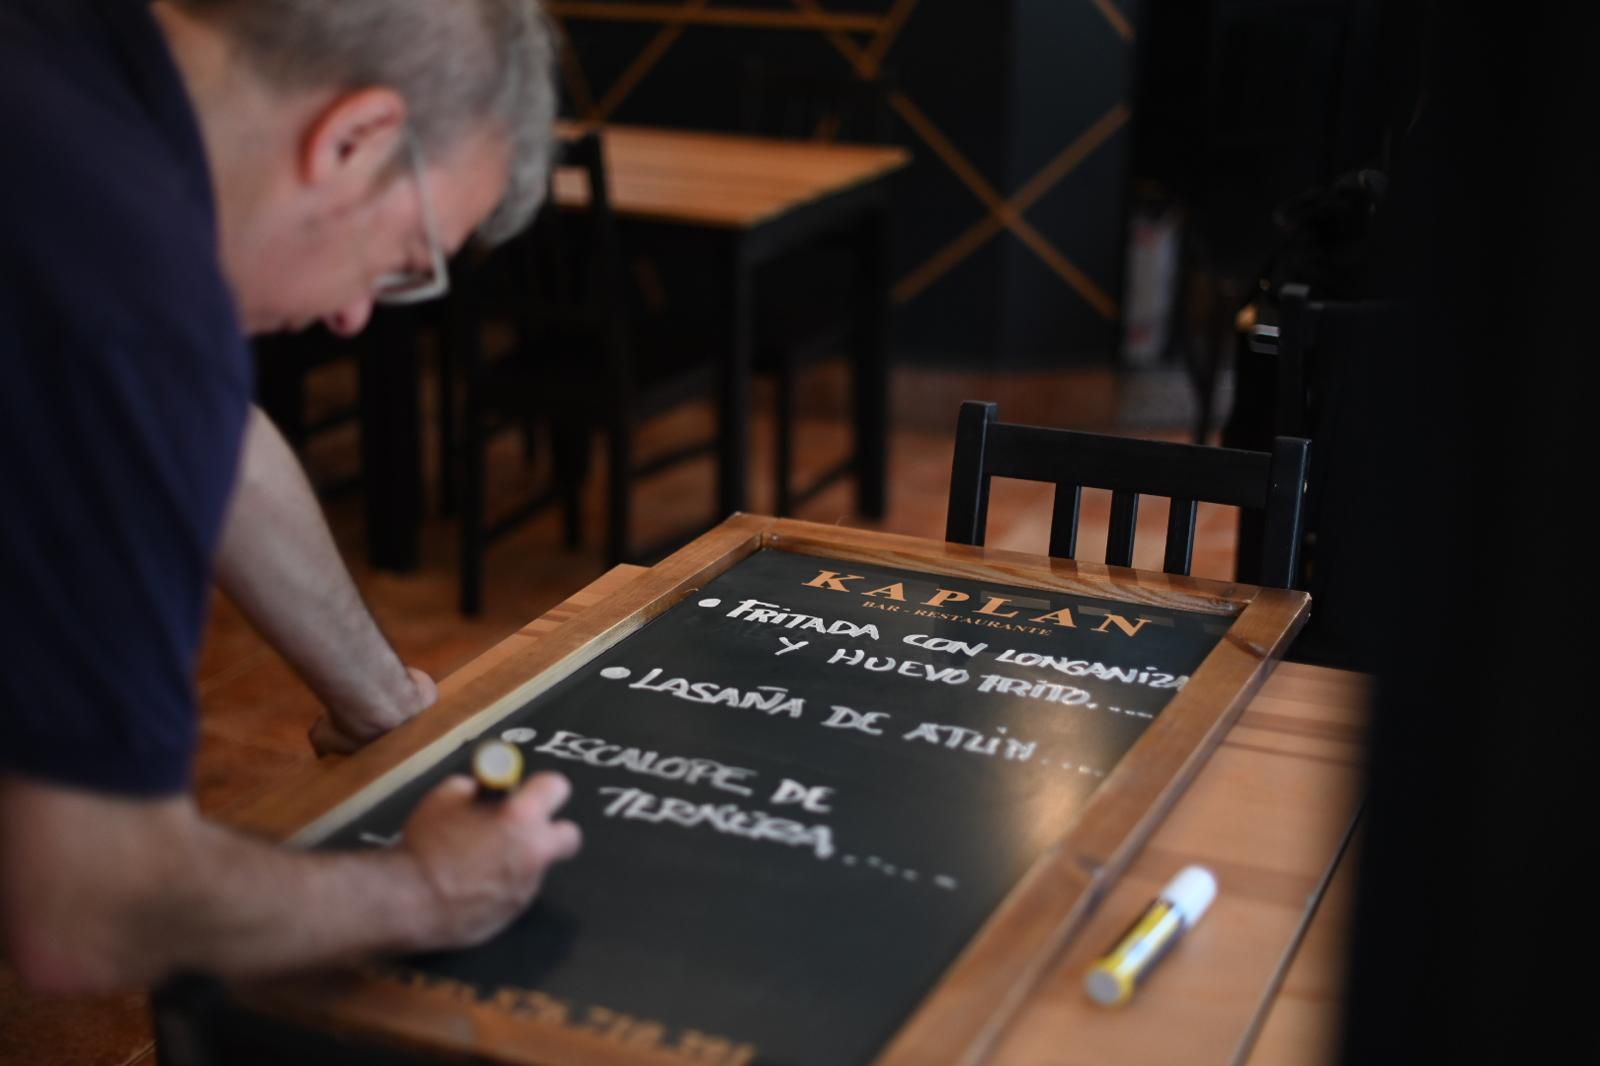 KAPLAN
BAR - RESTAURANTE
• FRITADA CON LONGANIZA
Y HUEVO FRITO. ...
• LASAÑA DE ATÚN ....
• ESCALOPE DE
TERNERA ......